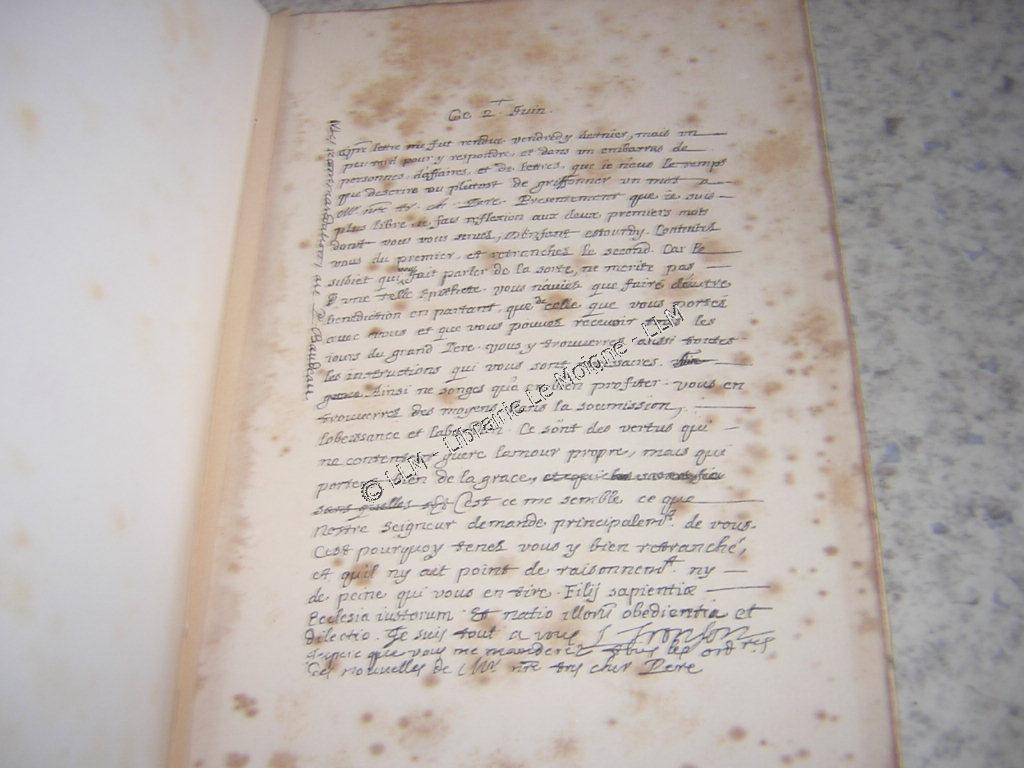 Ce 2 Juin.
lettre me fut rendue vendredy dernier, mais un
peu tard pour y respondre, et dans un embarras de
personnes, d'affaires, et de lettres, que ie n'eus le temps
que descrire ou plutost de griffonner un mot a
nre tr. ch. Pere. Presentement que ie suis
plus libre, ie fais reflexion aux deux premiers mots
dont vous vous serves, enfant estourdy. Contentes
vous du premier, et retranches le second. Car le
subiet qui vous fait parler de la sorte, ne merite pas
une telle Epithete. vous n'avies que faire de
benediction en partant, que de celle que vous portes
avec vous et que vous pouves recevoir les
iours du grand Pere. vous y trouverres aussi toutes
les instructions qui vous sont
Ainsi ne songes qu'a en bien profiter. vous en
trouverres des moyens dans la soumission,
lobeissance et Ce sont des vertus qui
ne guere lamour propre, mais que
bien de la grace,
sans quelles C'est ce me semble ce que
Nostre Seigneur demande principalemt. de vous.
C'est pourquoy tenes vous y bien retranché,
et quil ny ait point de raisonnemt. ny
de peine qui vous en tire. Filij sapientiæ
Ecclesia iustorum. Et natio illorū obedientia et
dilectio. Je suis tout a vous J Tronson
que vous me manderes tous les ordres
des nouvelles de Mr nre tres cher Pere
Mes recommandations au P. Baudeau
© LLM - Librairie Le Moigne - LLM